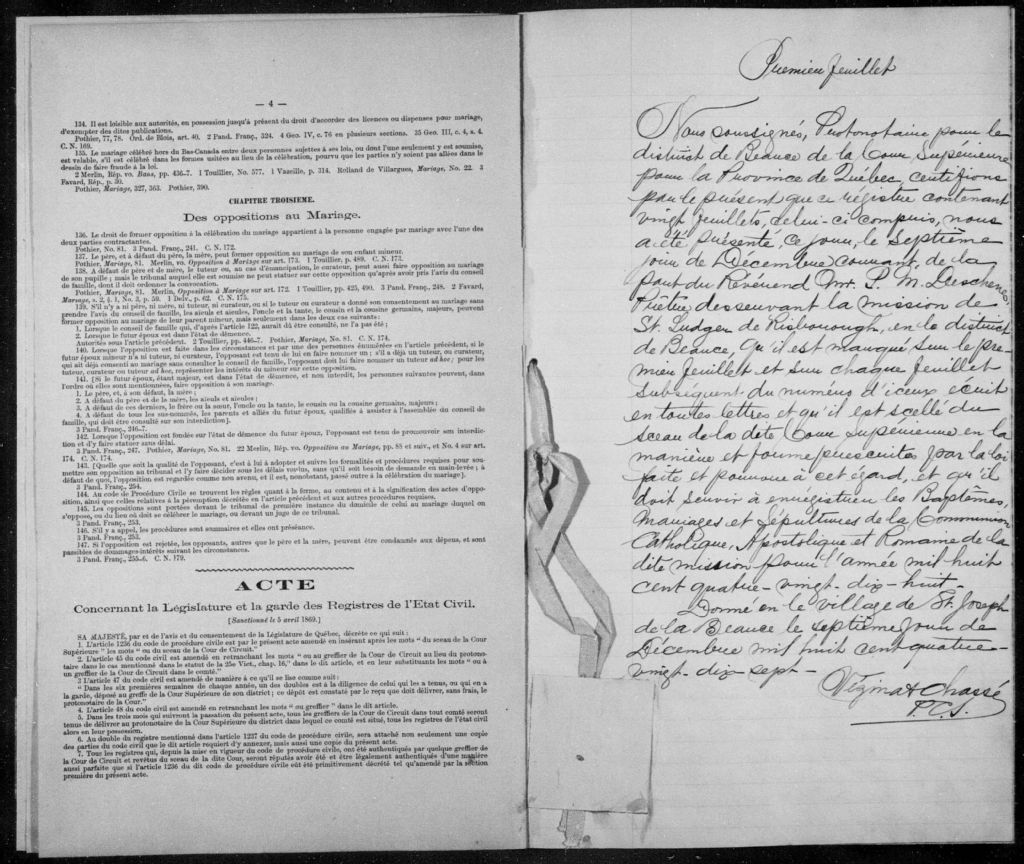 — 4 —
134. Il est loisible aux autorités, en possession jusqu'à présent du droit d'accorder des licences ou dispenses pour mariage,
d'exempter des dites publications.
Pothier, 77, 78. Ord. de Blois, art. 40. 2 Pand. Franç., 324. 4 Geo. IV, c. 76 en plusieurs sections. 35 Geo. III, c. 4, s. 4.
C. N. 169.
155. Le mariage célébré hors du Bas-Canada entre deux personnes sujettes à ses lois, ou dont l'une seulement y est soumise,
est valable, s'il est célébré dans les formes usitées au lieu de la célébration, pourvu que les parties n'y soient pas allées dans le
dessin de faire fraude à la loi.
2 Merlin, Rép. vo. Bans, pp. 436-7. 1 Touillier, No. 577. 1 Vazeille, p. 314. Rolland de Villargues, Mariage, No. 22. 3
Favard, Rép., p. 30.
Pothier, Mariage, 327, 363. Pothier, 390.
CHAPITRE TROISIEME.
Des oppositions au Mariage.
136. Le droit de former opposition à la célébration du mariage appartient à la personne engagée par mariage avec l'une des
deux parties contractantes.
Pothier, No. 81. 3 Pand. Franç., 241. C. N. 172.
137. Le père, et à défaut du père, la mère, peut former opposition au mariage de son enfant mineur.
Pothier, Mariage, 81. Merlin, vo. Opposition à Mariage sur art. 173. 1 Touillier, p. 489. C. N. 173.
138. A défaut de père et de mère, le tuteur ou, au cas d'émancipation, le curateur, peut aussi faire opposition au mariage
de son pupille ; mais le tribunal auquel elle est soumise ne peut statuer sur cette opposition qu'après avoir pris l'avis du conseil
de famille, dont il doit ordonner la convocation.
Pothier, Mariage, 81. Merlin, Opposition à Mariage sur art. 172. 1 Touillier, pp. 425, 490. 3 Pand. Franç., 248. 2 Favard,
Mariage, s. 2, § 1, No. 3, p. 59. 1 Delv., p. 62. C. N. 175.
139. S'il n'y a ni père, ni mère, ni tuteur, ni curateur, ou si le tuteur ou curateur a donné son consentement au mariage sans
prendre l'avis du conseil de famille, les aïeuls et aïeules, l'oncle et la tante, le cousin et la cousine germains, majeurs, peuvent
former opposition au mariage de leur parent mineur, mais seulement dans les deux cas suivants :
1. Lorsque le conseil de famille qui, d'après l'article 122, aurait dû être consulté, ne l'a pas été ;
2. Lorsque le futur époux est dans l'état de démence.
Autorités sous l'article précédent. 2 Touillier, pp. 446-7. Pothier, Mariage, No. 81. C. N. 174.
140. Lorsque l'opposition est faite dans les circonstances et par une des personnes énumérées en l'article précédent, si le
futur époux mineur n'a ni tuteur, ni curateur, l'opposant est tenu de lui en faire nommer un ; s'il a déjà un tuteur, ou curateur,
qui ait déjà consenti au mariage sans consulter le conseil de famille, l'opposant doit lui faire nommer un tuteur ad hoc ; pour les
tuteur, curateur ou tuteur ad hoc, représenter les intérêts du mineur sur cette opposition.
141. [Si le futur époux, étant majeur, est dans l'état de démence, et non interdit, les personnes suivantes peuvent, dans
l'ordre où elles sont mentionnées, faire opposition à son mariage.
1. Le père, et, à son défaut, la mère ;
2. A défaut du père et de la mère, les aïeuls et aïeules ;
3. A défaut de ces derniers, le frère ou la sœur, l'oncle ou la tante, le cousin ou la cousine germains, majeurs ;
4. A défaut de tous les sus-nommés, les parents et alliés du futur époux, qualifiés à assister à l'assemblée du conseil de
famille, qui doit être consulté sur son interdiction].
3 Pand. Franç., 246-7.
142. Lorsque l'opposition est fondée sur l'état de démence du futur époux, l'opposant est tenu de promouvoir son interdic-
tion et d'y faire statuer sans délai.
3 Pand. Franç., 247. Pothier, Mariage, No. 81. 22 Merlin, Rép. vo. Opposition au Mariage, pp. 88 et suiv., et No. 4 sur art.
174. C. N. 174.
143. [Quelle que soit la qualité de l'opposant, c'est à lui à adopter et suivre les formalités et procédures requises pour sou-
mettre son opposition au tribunal et l'y faire décider sous les délais voulus, sans qu'il soit besoin de demande en main-levée ; à
défaut de quoi, l'opposition est regardée comme non avenu, et il est, nonobstant, passé outre à la célébration du mariage].
3 Pand. Franç., 254.
144. Au code de Procédure Civile se trouvent les règles quant à la forme, au contenu et à la signification des actes d'oppo-
sition, ainsi que celles relatives à la péremption décrétée en l'article précédent et aux autres procédures requises.
145. Les oppositions sont portées devant le tribunal de première instance du domicile de celui au mariage duquel on
s'oppose, ou du lieu où doit se célébrer le mariage, ou devant un juge de ce tribunal.
3 Pand. Franç., 253.
146. S'il y a appel, les procédures sont sommaires et elles ont préséance.
3 Pand. Franç., 253.
147. Si l'opposition est rejetée, les opposants, autres que le père et la mère, peuvent être condamnés aux dépens, et sont
passibles de dommages-intérêts suivant les circonstances.
3 Pand. Franç., 255-6. C. N. 179.
ACTE
Concernant la Législature et la garde des Registres de l'Etat Civil.
[Sanctionné le 5 avril 1869.]
SA MAJESTÉ, par et de l'avis et du consentement de la Législature de Québec, décrète ce qui suit :
1. L'article 1236 du code de procédure civile est par le présent acte amendé en insérant après les mots " du sceau de la Cour
Supérieure " les mots " ou du sceau de la Cour de Circuit."
2. L'article 45 du code civil est amendé en retranchant les mots " ou au greffier de la Cour de Circuit au lieu du protono-
taire dans le cas mentionné dans le statut de la 25e Vict., chap. 16," dans le dit article, et en leur substituant les mots " ou à
un greffier de la Cour de Circuit dans le comté."
3 L'article 47 du code civil est amendé de manière à ce qu'il se lise comme suit :
" Dans les six premières semaines de chaque année, un des doubles est à la diligence de celui qui les a tenus, ou qui en a
la garde, déposé au greffe de la Cour Supérieure de son district ; ce dépôt est constaté par le reçu que doit délivrer, sans frais, le
protonotaire de la Cour."
4. L'article 48 du code civil est amendé en retranchant les mots " ou greffier " dans le dit article.
5. Dans les trois mois qui suivront la passation du présent acte, tous les greffiers de la Cour de Circuit dans tout comté seront
tenus de délivrer au protonotaire de la Cour Supérieure du district dans lequel ce comté est situé, tous les registres de l'état civil
alors en leur possession.
6. Au double du registre mentionné dans l'article 1237 du code de procédure civile, sera attaché non seulement une copie
des parties du code civil que le dit article requiert d'y annexer, mais aussi une copie du présent acte.
7. Tous les registres qui, depuis la mise en vigueur du code de procédure civile, ont été authentiqués par quelque greffier de
la Cour de Circuit et revêtus du sceau de la dite Cour, seront réputés avoir été et être légalement authentiqués d'une manière
aussi parfaite que si l'article 1236 du dit code de procédure civile eût été primitivement décrété tel qu'amendé par la section
première du présent acte.
Premier feuillet
Nous soussignés, Protonotaire pour le
district de Beauce de la Cour Supérieure
pour la Province de Québec, certifions
par le présent que ce régistre contenant
vingt feuillets, celui-ci compris, nous
a été présenté, ce jour, le Septième
jour de Décembre courant, de la
part du Révérend Mr. P. M. Deschenes,
Prêtre desservant la mission de
St. Ludger de Risborough, en le district
de Beauce, qu'il est marqué sur le pre-
mier feuillet et sur chaque feuillet
subséquent du numéro d'iceux écrit
en toutes lettres et qu'il est scellé du
sceau de la dite Cour Supérieure en la
manière et forme prescrites par la loi
faite et pourvue à cet égard, et qu'il
doit servir à enrégistrer les Baptêmes,
Mariages et Sépultures de la Communion
Catholique, Apostolique et Romaine de la
dite mission pour l'année mil huit
cent quatre-vingt-dix-huit.
Donné en le village de St. Joseph
de la Beauce le septième jour de
Décembre mil huit cent quatre-
vingt-dix-sept.
Vézina & Chassé
P.C.S.